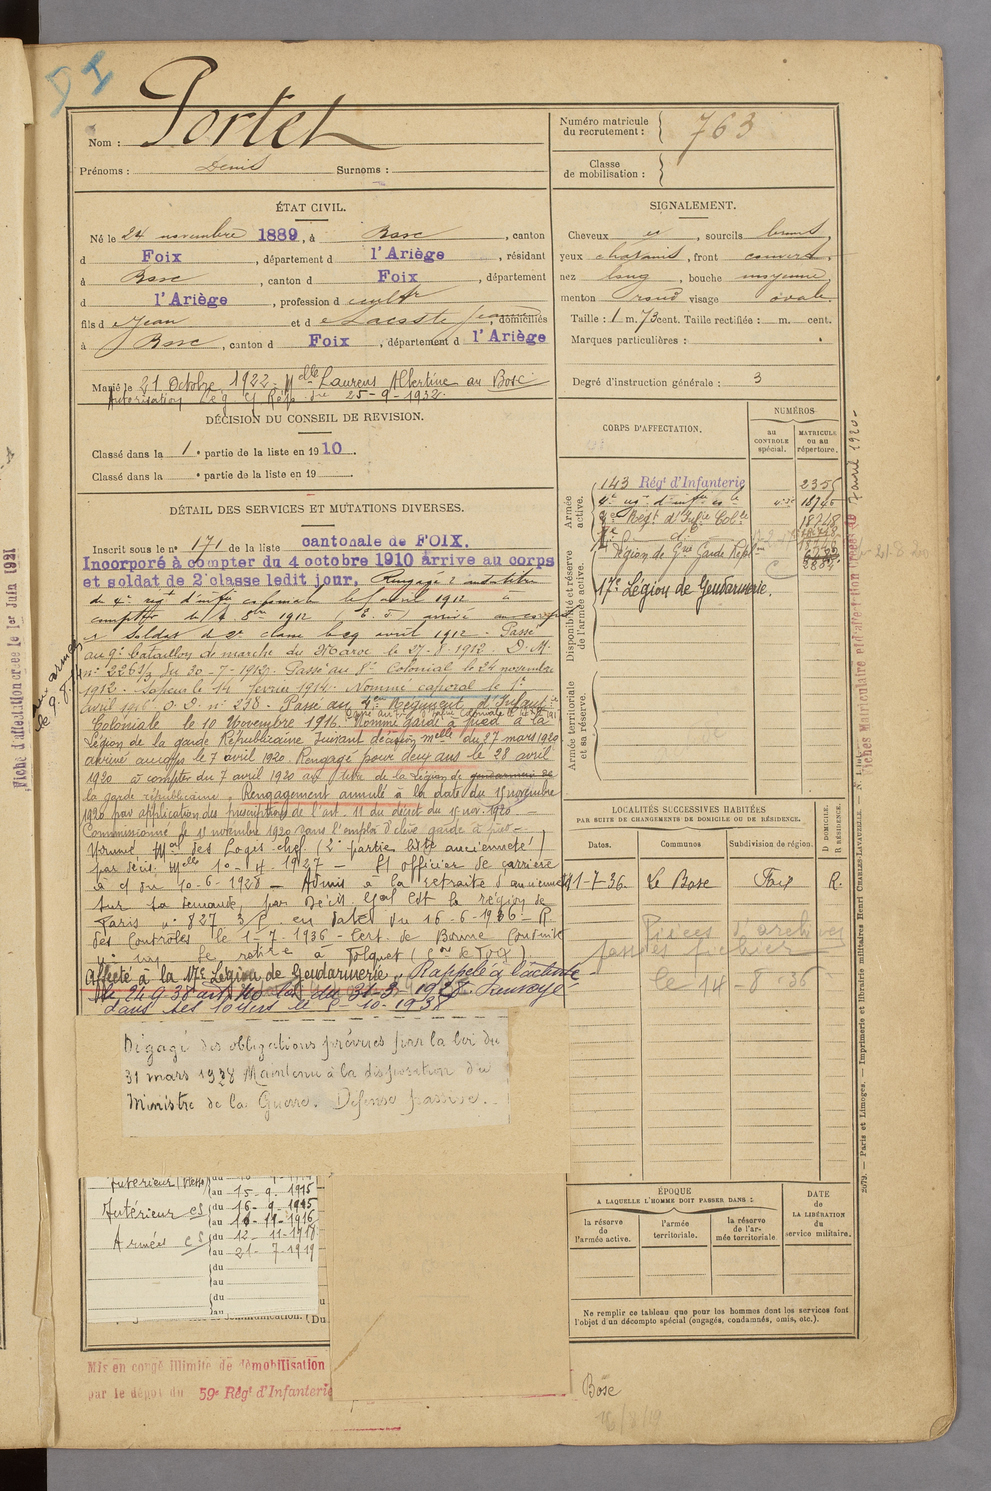 D I
Nom : Portet
Prénoms : Denis Surnoms :
Numéro matricule du recrutement : 763
Classe de mobilisation :
ÉTAT CIVIL.
Né le 24 novembre 1889, à Bosc, canton
d Foix, département d l'Ariège, résidant
à Bosc, canton d Foix, département
d l'Ariège, profession d cultr
fils d e Jean et d e Lacoste Jeanne, domiciliés
à Bosc, canton d Foix, département d l'Ariège
Marié le 21 Octobre 1922. Melle Laurens Albertine au Bosc
Autorisation 25-9-1922.
SIGNALEMENT.
Cheveux , sourcils bruns,
yeux châtains, front couvert,
nez long, bouche moyenne,
menton rond visage ovale.
Taille : 1 m. 73 cent. Taille rectifiée : m. cent.
Marques particulières :
Degré d'instruction générale : 3
DÉCISION DU CONSEIL DE REVISION.
Classé dans la 1e partie de la liste en 1910.
Classé dans la e partie de la liste en 19 .
DÉTAIL DES SERVICES ET MUTATIONS DIVERSES.
Inscrit sous le n° 171 de la liste cantonale de FOIX.
Incorporé à compter du 4 octobre 1910 arrive au corps
et soldat de 2e classe ledit jour, Rengagé
du 4e regt d'infie coloniale le avril 1912 à
compter du 4 8bre 1912 arrivé au corps
soldat de 2e classe le 29 avril 1912. Passé
au 9e bataillon de marche du Maroc le 27-8-1912. D.M.
n° 2263/3 du 30-7-1912. Passé au 8e Colonial le 24 novembre
1912. Sapeur le 14 février 1914. Nommé caporal le 1er
avril 1916 O.D. n° 238. Passé au 4eme Régiment d'Infanie
Coloniale le 10 Novembre 1916. Nommé garde à pied à la
Légion de la garde Républicaine suivant décision melle du 27 mars 1920
arrivé au corps le 7 avril 1920. Rengagé pour deux ans le 28 avril
1920 à compter du 7 avril 1920 au titre de la Légion de gendarmerie de
la garde républicaine. Rengagement annulé à la date du 15 novembre
1920 par application des prescriptions de l'art. 11 du décret du 15 nov. 1920.
Commissionné le 15 novembre 1920 dans l'emploi d'élève garde à pied
Nommé Mal des Logis chef (2e partie liste ancienneté)
par décis. Melle 10-4-1927 — St officier de carrière
à cl du 10-6-1928 — Admis à la retraite d'ancienneté
sur sa demande, par Décis. Gal Cdt la région de
Paris n° 827 3/P en date du 16-6-1936 — R.
des Contrôles le 1-7-1936 — Cert. de Bonne Conduite
Se retire à Tolquet (on de Foix)
Affecté à la 17e Légion de Gendarmerie. Rappelé à l'activité
le 24.9.38 loi du 31-3-1928. Renvoyé
dans ses foyers le 5-10-1938
Dégagé des obligations prévues par la loi du
31 mars 1928 Maintenu à la disposition du
Ministre de la Guerre. Défense passive.
CORPS D'AFFECTATION.
NUMÉROS
au CONTROLE spécial.
MATRICULE ou au répertoire.
Armée active.
Disponibilité et réserve de l'armée active.
Armée territoriale et sa réserve.
143 Régt d'Infanterie 2355
4e regt d'infie cle 18745
8e Régt d'Infie Colle 18748
Légion de Gie Garde Répne
17e Légion de Gendarmerie.
LOCALITÉS SUCCESSIVES HABITÉES
PAR SUITE DE CHANGEMENTS DE DOMICILE OU DE RÉSIDENCE.
Dates. Communes Subdivision de région. D DOMICILE. R RÉSIDENCE.
1-7-36. Le Bosc Foix R.
Pièces d'archives
fichier
le 14-8-36
ÉPOQUE
A LAQUELLE L'HOMME DOIT PASSER DANS :
la réserve de l'armée active.
l'armée territoriale.
la réserve de l'armée territoriale
DATE de LA LIBÉRATION du service militaire.
Ne remplir ce tableau que pour les hommes dont les services font
l'objet d'un décompte spécial (engagés, condamnés, omis, etc.).
Intérieur (Blessé)
au 15-9-1915
Intérieur cs du 16-9-1915
au 11-11-1916
Armées cs du 12-11-1918
au 21-7-1919
du
au
du
au
Mis en congé illimité de démobilisation
par le dépôt du 59e Régt d'Infanterie
Bosc
Fiche d'affectation créée le 1er Juin 1921
2079. — Paris et Limoges. — Imprimerie et librairie militaires Henri CHARLES-LAVAUZELLE.